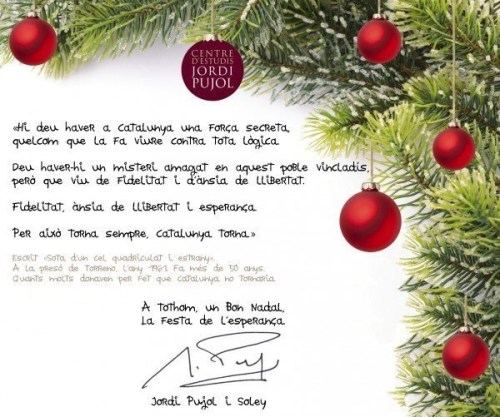 CENTRE
D'ESTUDIS
JORDI
PUJOL
«Hi deu haver a Catalunya una força secreta,
quelcom que la fa viure contra tota lògica.
Deu haver-hi un misteri amagat en aquest poble vincladís,
però que viu de fidelitat i d'ànsia de llibertat.
Fidelitat, ànsia de llibertat i esperança.
Per això torna sempre, Catalunya torna.»
Escrit «Sota d'un cel quadriculat i estrany».
A la presó de Torrero, l'any Fa més de 50 anys.
Quants molts donaven per fet que Catalunya no tornaria.
A tothom, un Bon Nadal,
La festa de l'esperança.
Jordi Pujol i Soley